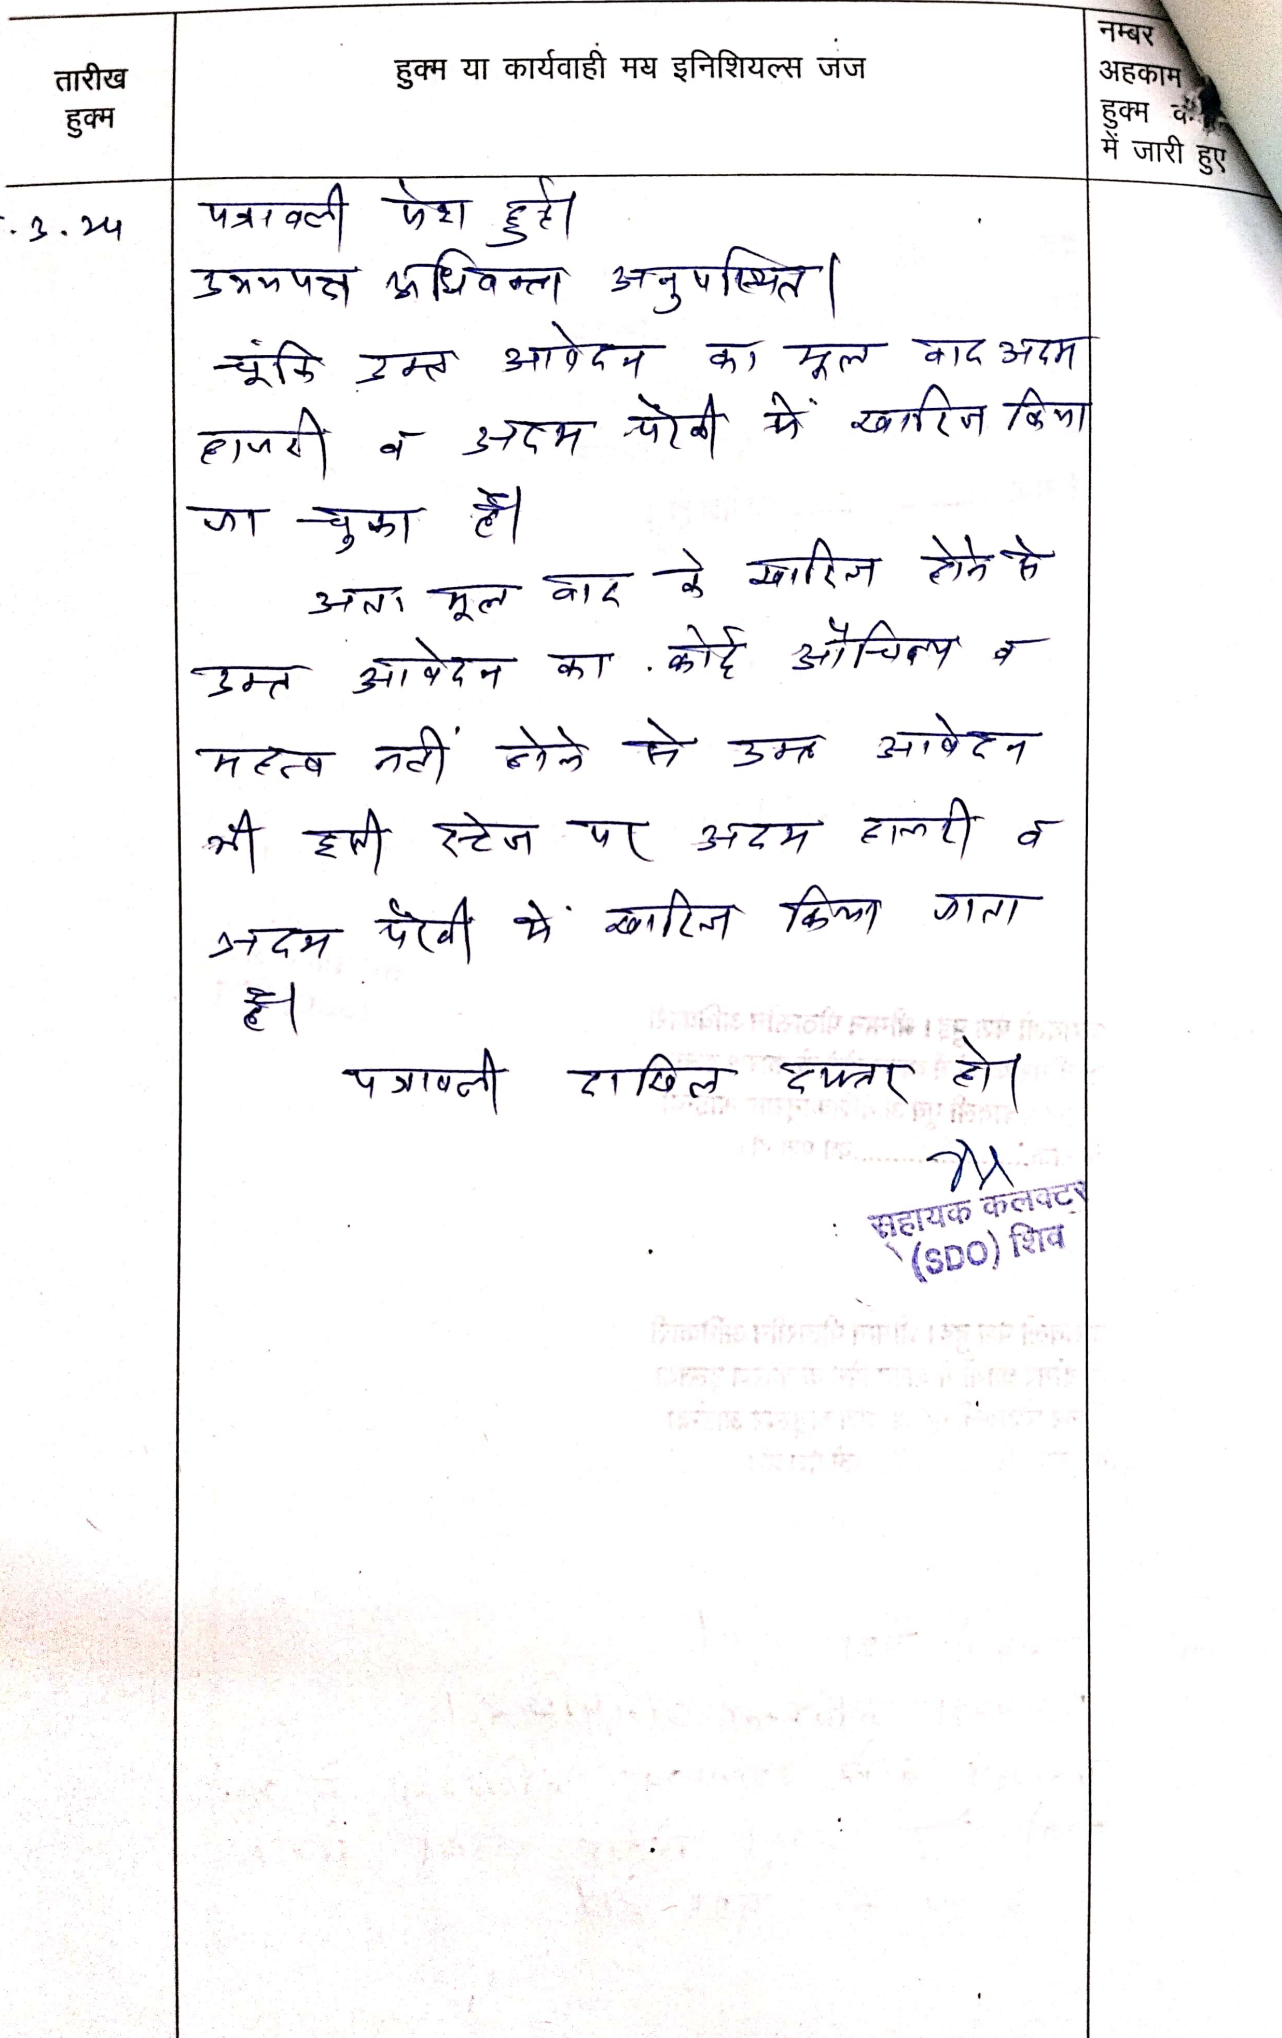 तारीख
हुक्म
हुक्म या कार्यवाही मय इनिशियल्स जज
नम्बर
अहकाम
हुक्म
में जारी हुए
.3.24
पत्रावली पेश हुई।
उभयपक्ष अधिवक्ता अनुपस्थित।
चूंकि उक्त आवेदन का मूल वाद अदम
हाजरी व अदम पैरवी में खारिज किया
जा चुका है।
अतः मूल वाद के खारिज होने से
उक्त आवेदन का कोई औचित्य व
महत्व नहीं होने से उक्त आवेदन
भी इसी स्टेज पर अदम हाजरी व
अदम पैरवी में खारिज किया जाता
है।
पत्रावली दाखिल दफ्तर हो।
सहायक कलक्टर
(SDO) शिव